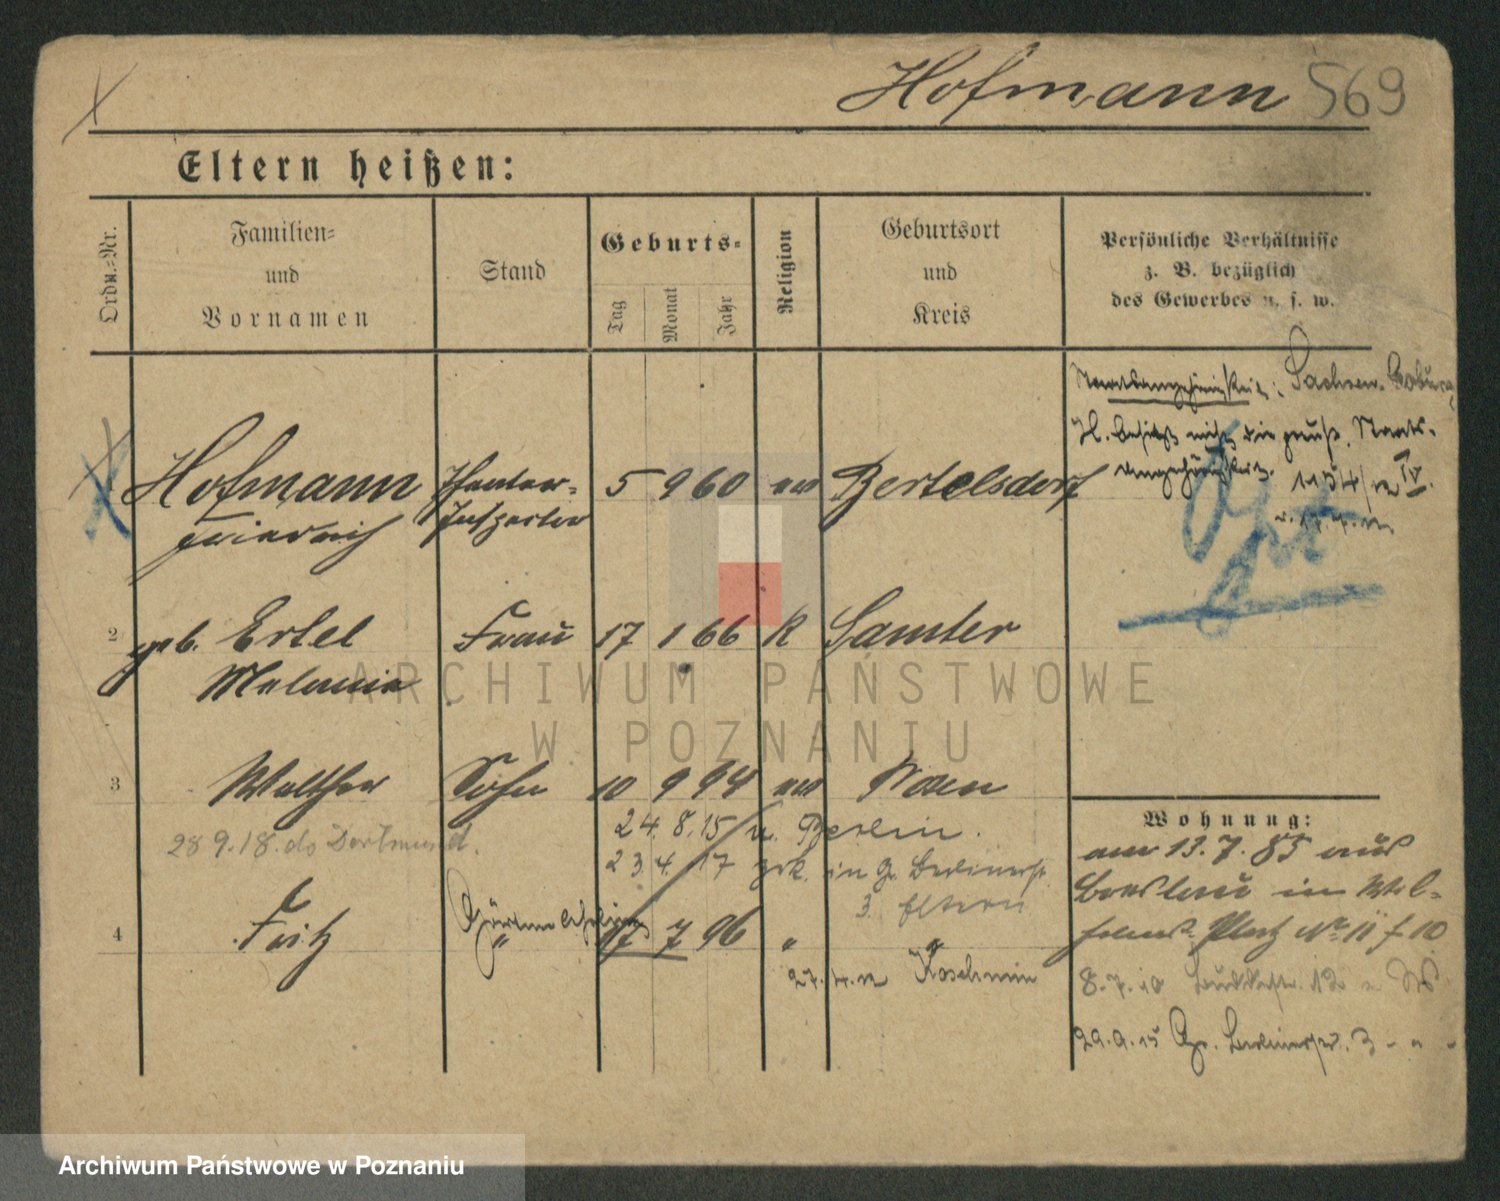 Hofmann 569
Eltern heißen:
Ordn.-Nr.
Familien-
und
Vornamen
Stand
Geburts-
Tag
Monat
Jahr
Religion
Geburtsort
und
Kreis
Persönliche Verhältnisse
z. B. bezüglich
des Gewerbes u. s. w.
Staatsangehörigkeit: Sachsen-Coburg
H. besitzt nicht die preuß. Staats-
angehörigkeit.
Hofmann
Friedrich
Inspector
5 9 60 ev Bertelsdorf
2 geb. Ertel Frau 17 1 66 K Samter
Melanie
3 Walther Sohn 10 9 94 ev Posen
28 9.18. do Dortmund.
24.8.15 n. Berlin.
23 4. 17 zrk. in Gr. Berlinerstr.
3 Eltern
4 Fritz 17 7 96 " "
27.4.12 Koschmin
Wohnung:
am 13.7.85 aus
Breslau in Wil-
helms Platz No 11 f 10
8.7.10
29.9.15 Gr. Berlinerstr. 3 - " -
ARCHIWUM PAŃSTWOWE
W POZNANIU
Archiwum Państwowe w Poznaniu